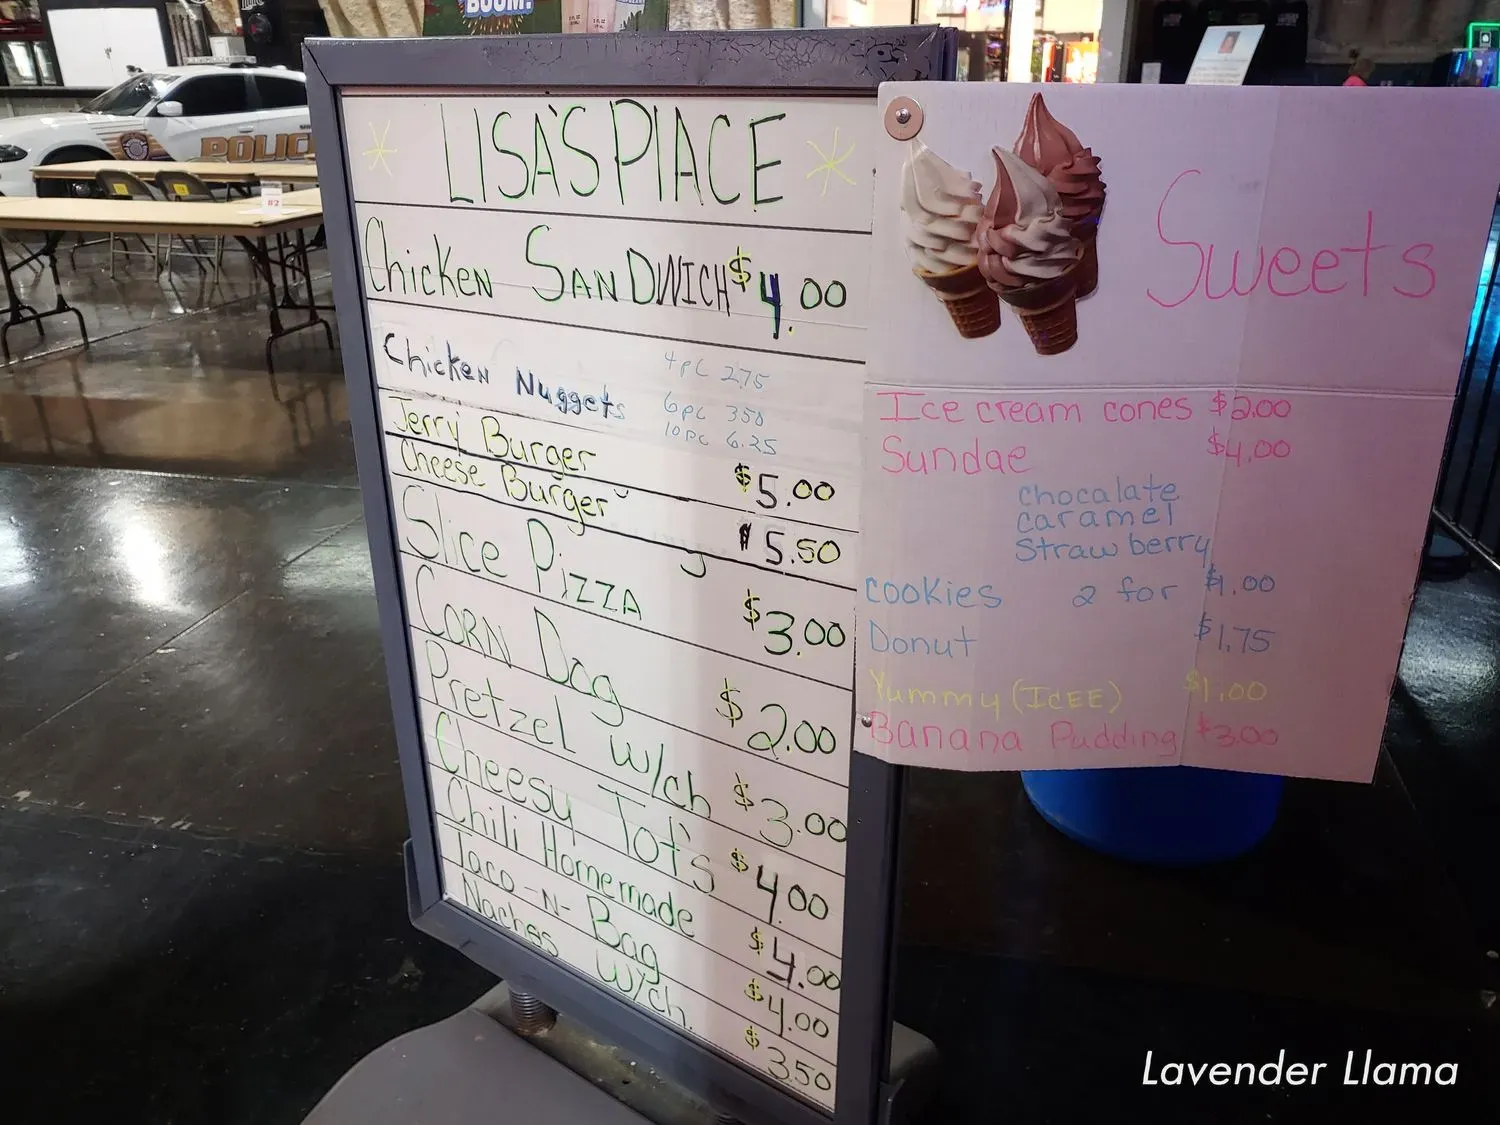 BOOM!
POLICE
#2
* LISA'S PLACE *
Chicken SANDWICH $4.00
Chicken Nuggets
4pc 2.75
6pc 350
10pc 6.25
Jerry Burger $5.00
Cheese Burger $5.50
Slice Pizza $3.00
Corn Dog $2.00
Pretzel w/ch $3.00
Cheesy Tot's $4.00
Chili Homemade $4.00
Taco-N-Bag $4.00
Nachos w/ch. $3.50
Sweets
Ice cream cones $2.00
Sundae $4.00
chocalate
caramel
Strawberry
cookies 2 for $1.00
Donut $1.75
Yummy (ICEE) $1.00
Banana Pudding $3.00
Lavender Llama